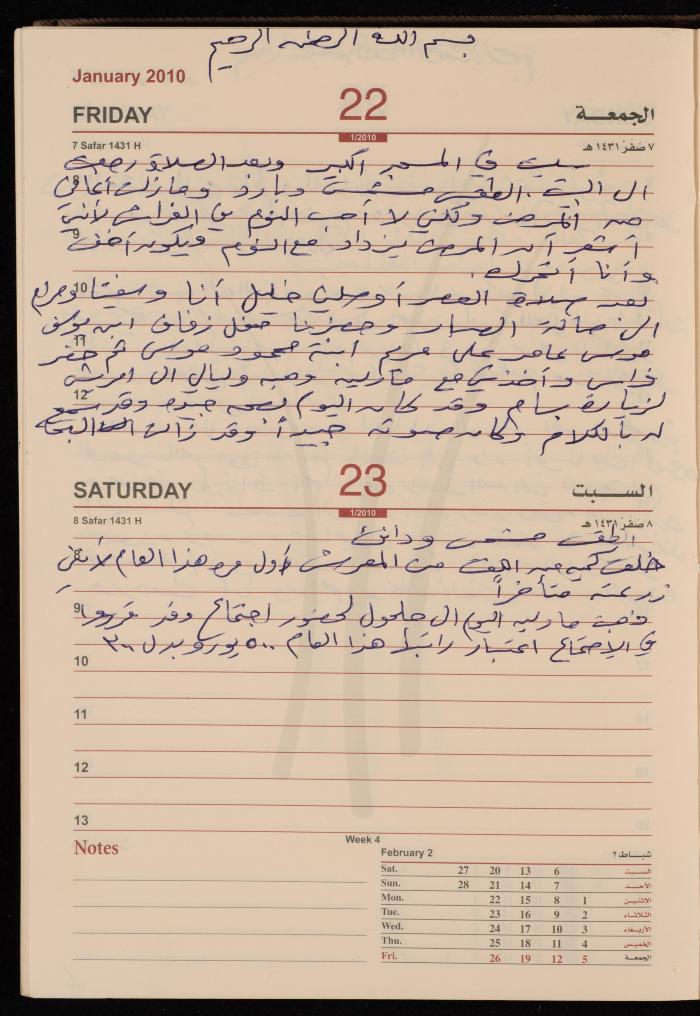 بسم الله الرحمن الرحيم
January 2010
FRIDAY 22 الجمعـــة
7 Safar 1431 H 1/2010 ٧ صفر ١٤٣١ هـ
في المسجد الكبير وبعد الصلاة رجعت
8 الى البيت. الطقس مشمس وبارد وما زلت أعاني
من المرض ولكني لا أحب النوم في الفراش لأنني
9 أشعر أن المرض يزداد مع النوم ويكون أخف
وأنا أتحرك.
10 بعد صلاة العصر أوصلني خليل أنا
الى صالة وحضرنا حفل زفاف ابن يوسف
11 موسى عامر على مريم ابنة محمود موسى ثم حضر
فراس وأخذني مع ماريه وهبه وليالي الى
12 لزيارة وقد كان اليوم بصحه جيده وقد
له بالكلام وكان صوته جيداً وقد زالت
SATURDAY 23 السـبت
8 Safar 1431 H 1/2010 ٨ صفر ١٤٣١ هـ
الطقس مشمس ودافئ
8 كميه من من المعرش لأول مره هذا العام لأنني
زرعته متأخراً
9 ذهبت ماريه اليوم الى حلحول لحضور اجتماع وقد قرروا
في الاجتماع اعتبار هذا العام ٥٠٠ يورو بدل ٣٠٠
10
11
12
13
Notes
Week 4
February 2 شبـــاط ٢
Sat. 27 20 13 6 السـبت
Sun. 28 21 14 7 الأحـد
Mon. 22 15 8 1 الاثنين
Tue. 23 16 9 2 الثلاثاء
Wed. 24 17 10 3 الأربعاء
Thu. 25 18 11 4 الخميس
Fri. 26 19 12 5 الجمعة